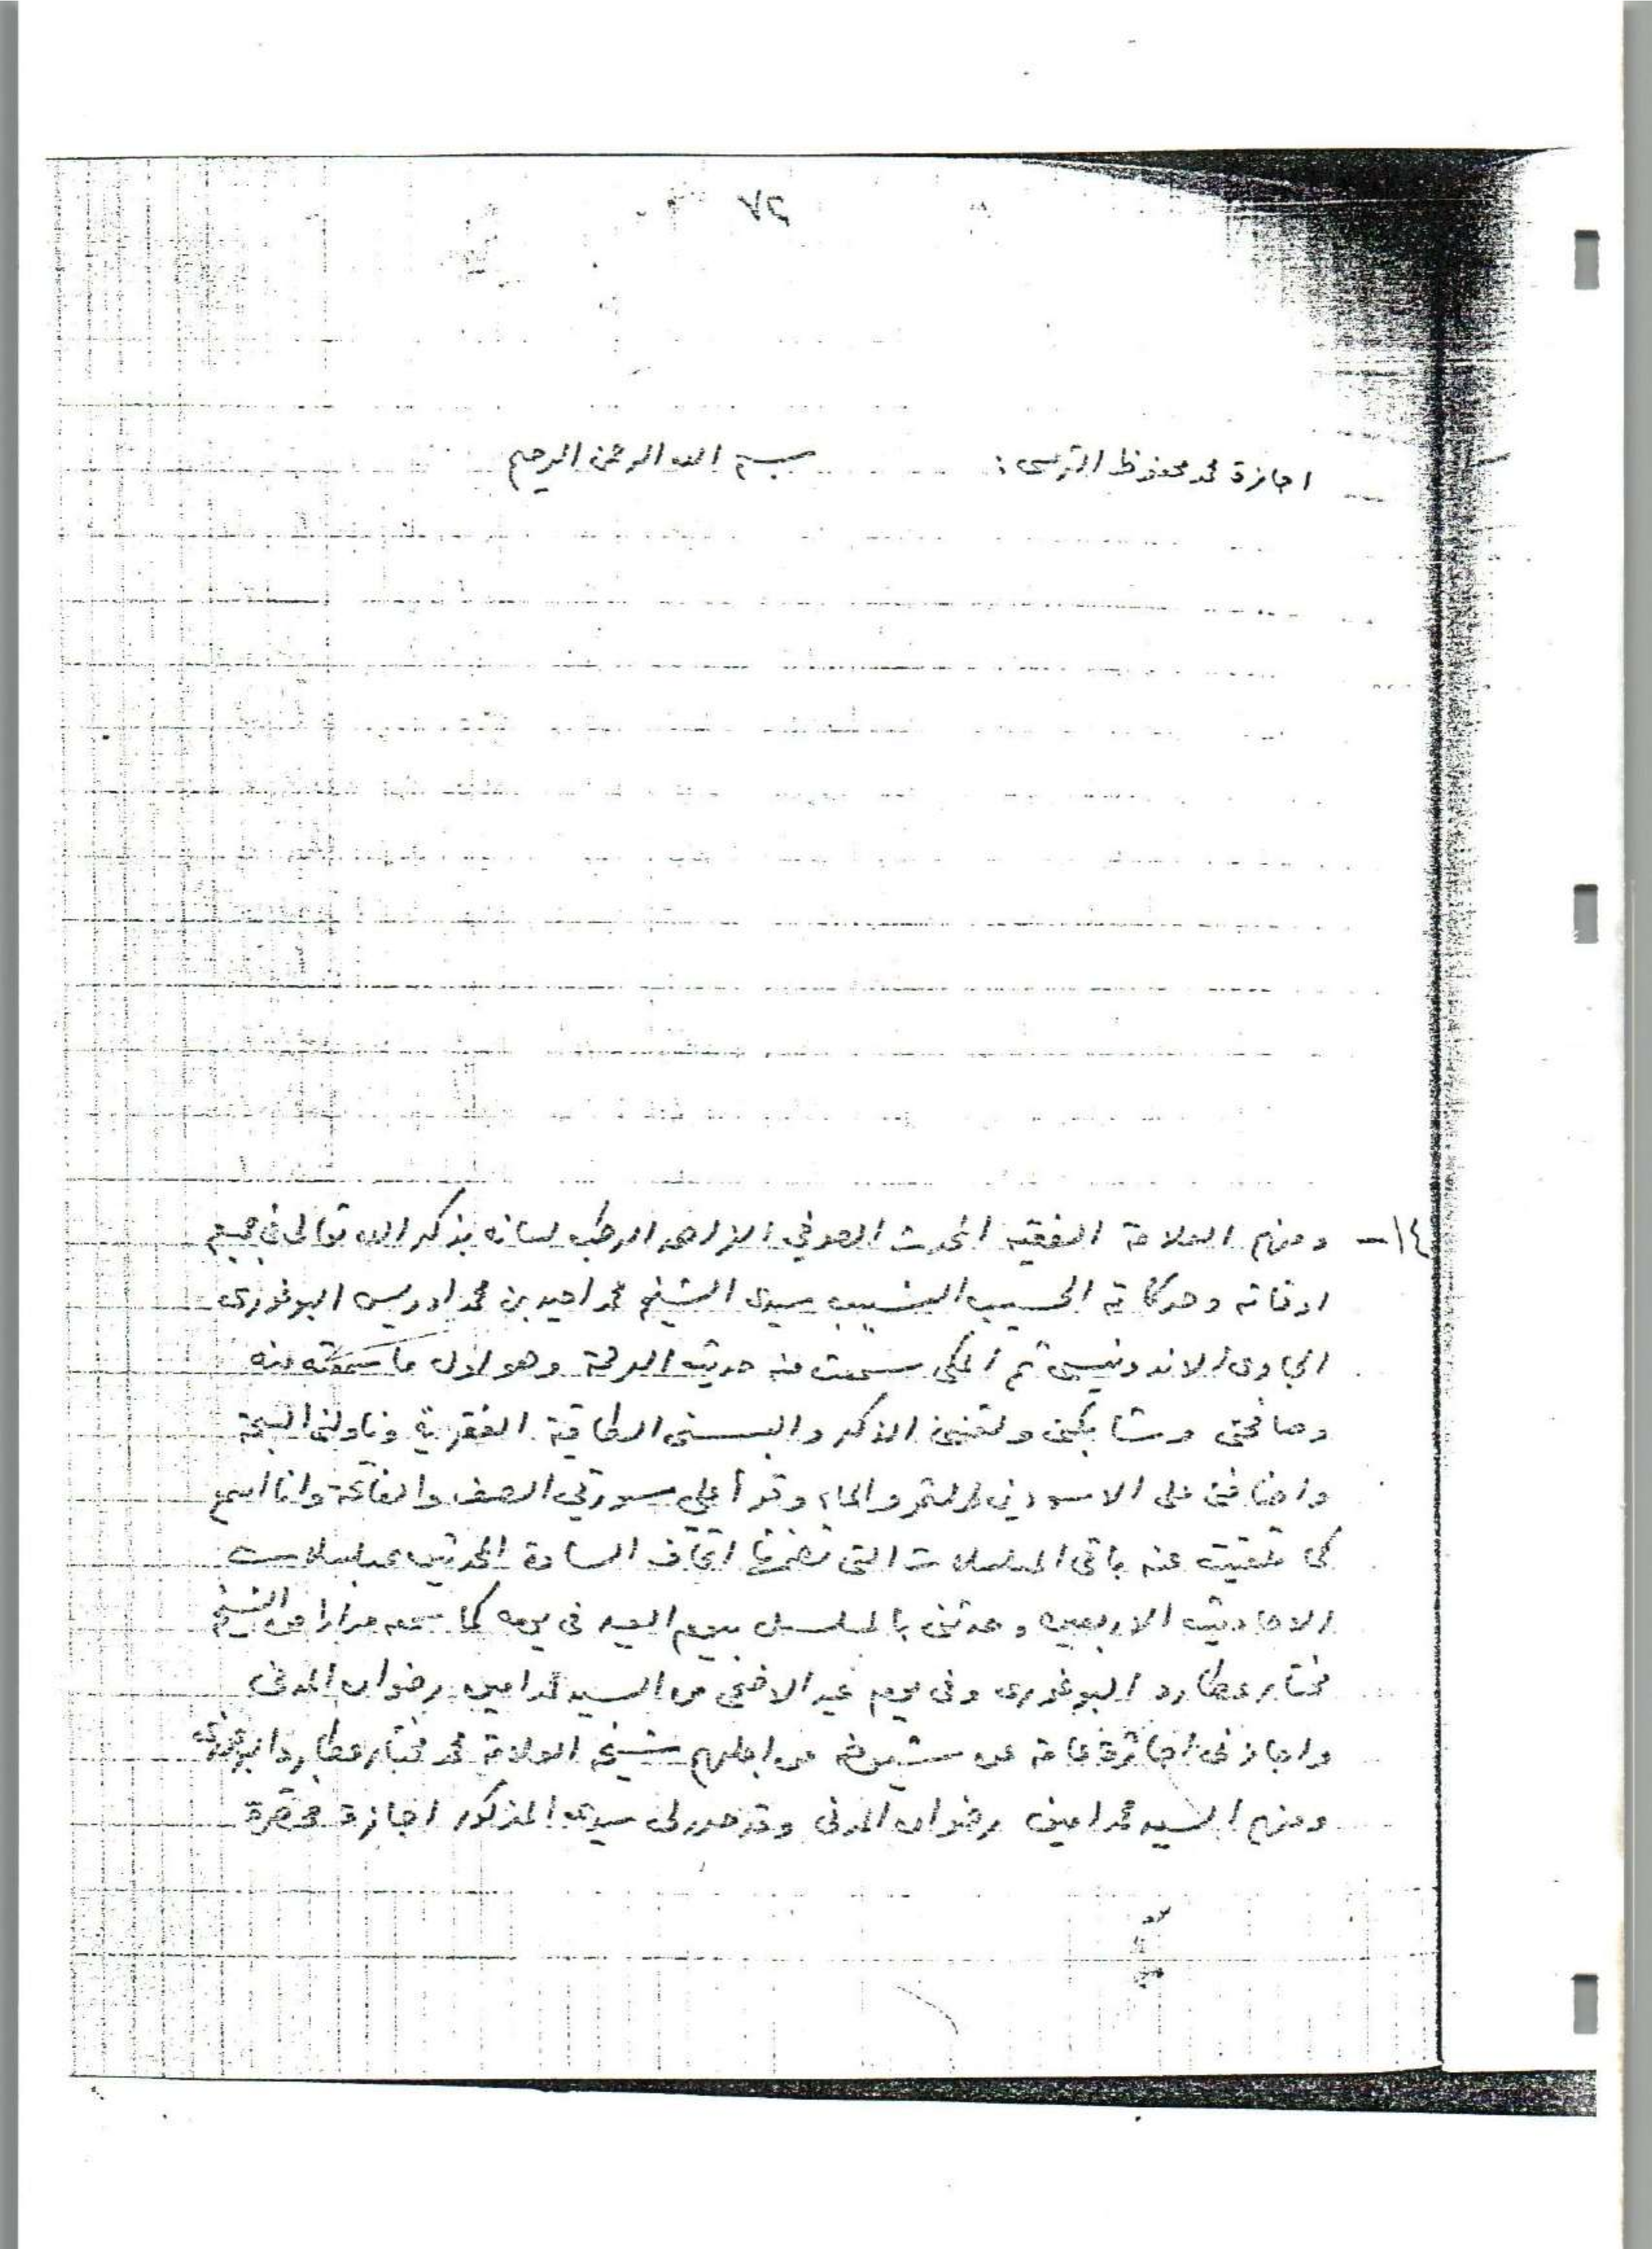 ٧٢
اجازة محمد محفوظ الترمسى : بسم الله الرحمن الرحيم
١٤- ومنهم العلامة الفقيه المحدث الصوفي الزاهد الرطب لسانه بذكر الله تعالى في جميع
اوقاته وحركاته الحسيب النسيب سيدى الشيخ محمد احيد بن محمد ادريس البوغورى
الجاوى الاندونيسى ثم المكى سمعت منه حديث الرحمة وهو اول ما سمعته منه
وصافحنى وشابكنى ولقننى الذكر والبسنى الطاقية الفقرية وناولنى السبحة
واضافنى على الاسودين التمر والماء وقرأ علي سورتي الصف والفاتحة وانا اسمع
كما تلقيت عنه باقى المسلسلات التى تضمنها اتحاف السادة المحدثين بمسلسلات
الاحاديث الاربعين وحدثنى بالمسلسل بيوم العيد فى يومه كما سمعه مرارا من الشيخ
مختار عطارد البوغورى وفى يوم عيد الاضحى من السيد محمد امين رضوان المدنى
واجازنى اجازة عامة عن شيوخه من اجلهم شيخه العلامة محمد مختار عطارد البوغورى
ومنهم السيد محمد امين رضوان المدنى وقد حرر لى سيدى المذكور اجازة مختصرة